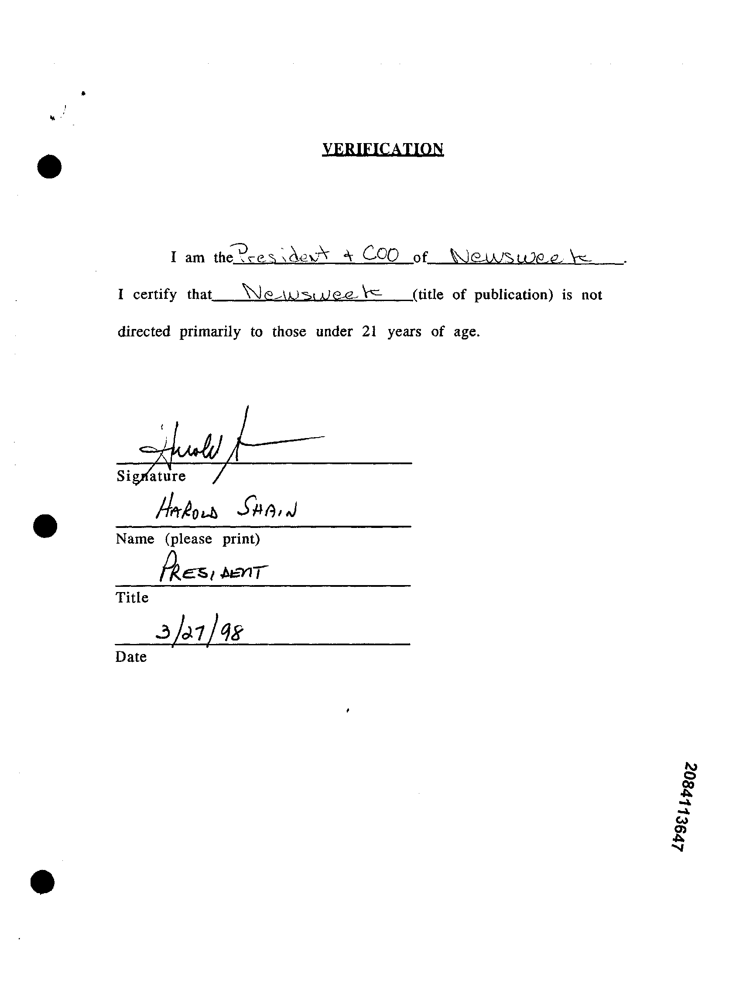 VERIFICATION
I am the President + COO of Newsweek.
I certify that Newsweek (title of publication) is not
directed primarily to those under 21 years of age.
Harold S
Signature
HAROLD SHAIN
Name (please print)
PRESIDENT
Title
3/27/98
Date
2084113647